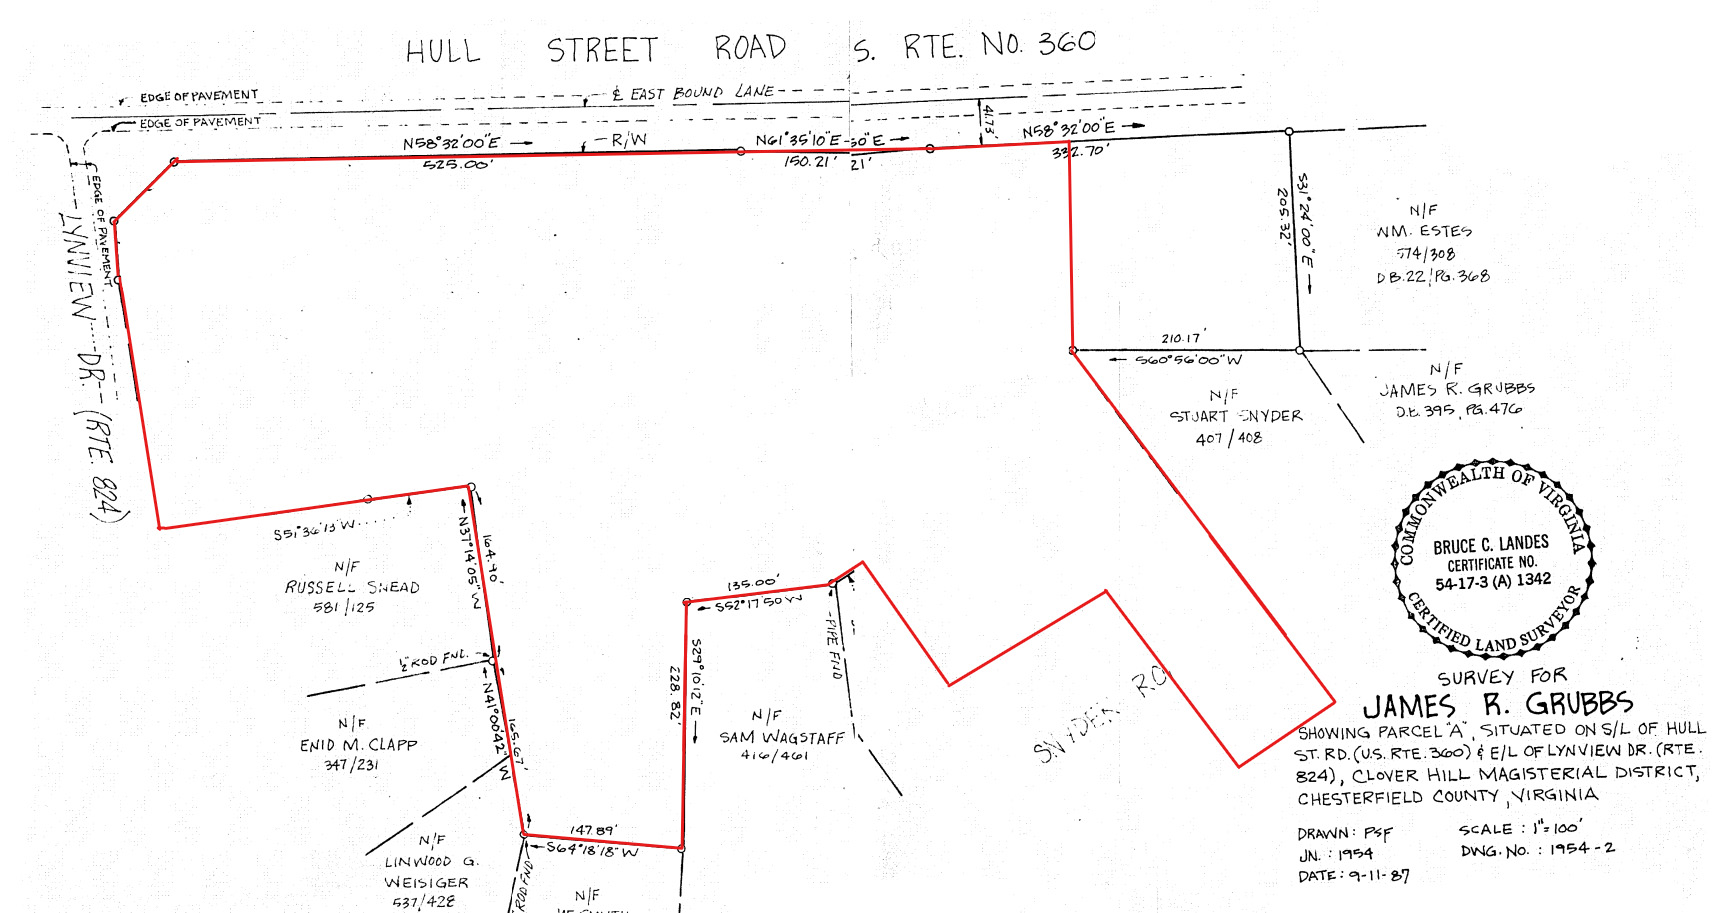 HULL STREET ROAD S. RTE. NO. 360
EDGE OF PAVEMENT
℄ EAST BOUND LANE
EDGE OF PAVEMENT
41.73'
N58°32'00"E
R/W
N61°35'10"E
30"E
N58°32'00"E
525.00'
150.21'
21'
332.70'
EDGE OF PAVEMENT
LYNVIEW DR. (RTE. 824)
S31°24'00"E
205.32'
N/F
WM. ESTES
574/308
DB.22, PG.368
210.17'
S60°56'00"W
N/F
JAMES R. GRUBBS
395, PG.476
N/F
STUART SNYDER
407/408
S51°36'13"W
N37°14'05"
164.90'
N/F
RUSSELL SNEAD
581/125
135.00'
S52°17'50"W
PIPE FND
S29°10'12"E
228.82'
N41°00'42"W
165.67'
N/F
ENID M. CLAPP
347/231
N/F
SAM WAGSTAFF
416/461
SNYDER RD
147.89'
S64°18'18"W
ROD FND
N/F
LINWOOD G.
WEISIGER
537/428
N/F
COMMONWEALTH OF VIRGINIA
BRUCE C. LANDES
CERTIFICATE NO.
54-17-3 (A) 1342
CERTIFIED LAND SURVEYOR
SURVEY FOR
JAMES R. GRUBBS
SHOWING PARCEL "A", SITUATED ON S/L OF HULL
ST. RD. (U.S. RTE. 360) & E/L OF LYNVIEW DR. (RTE.
824), CLOVER HILL MAGISTERIAL DISTRICT,
CHESTERFIELD COUNTY, VIRGINIA
DRAWN: PSF
SCALE: 1"=100'
JN.: 1954
DWG. NO.: 1954-2
DATE: 9-11-87